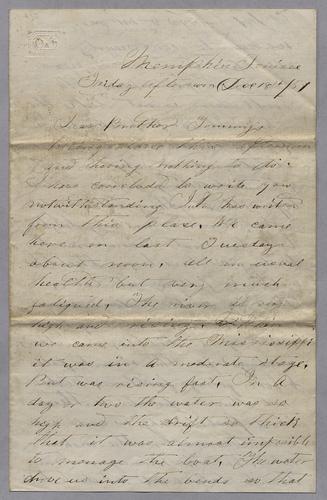 Memphis Tenn
Friday afternoon Dec 18th /57
Dear Brother Tommy
being alone this afternoon
and having nothing to do
I have concluded to write you
notwithstanding has written
from this place. We came
here on last Tuesday
about noon, all in usual
health but very much
fatigued. The river is very
high and rising.
we came into the Mississippi
it was in a moderate stage.
But was rising fast. In a
day or two the water was so
high and the drift so thick
that it was almost impossible
to manage the boat. The water
drove us into the bends so that